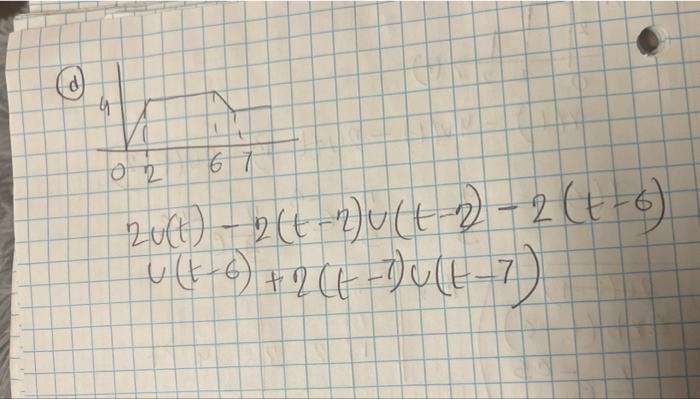 (d)
4
0 2 6 7
2u(t) - 2(t-2)u(t-2) - 2(t-6)
u(t-6) + 2(t-7)u(t-7)